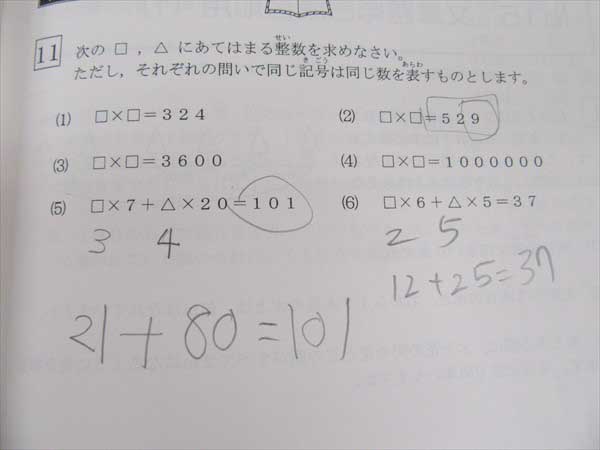 11 次の □ , △ にあてはまる整数を求めなさい。
せい
ただし , それぞれの問いで同じ記号は同じ数を表すものとします。
きごう あらわ
(1) □×□=324 (2) □×□=529
(3) □×□=3600 (4) □×□=1000000
(5) □×7+△×20=101 (6) □×6+△×5=37
3 4 2 5
12+25=37
21+80=101